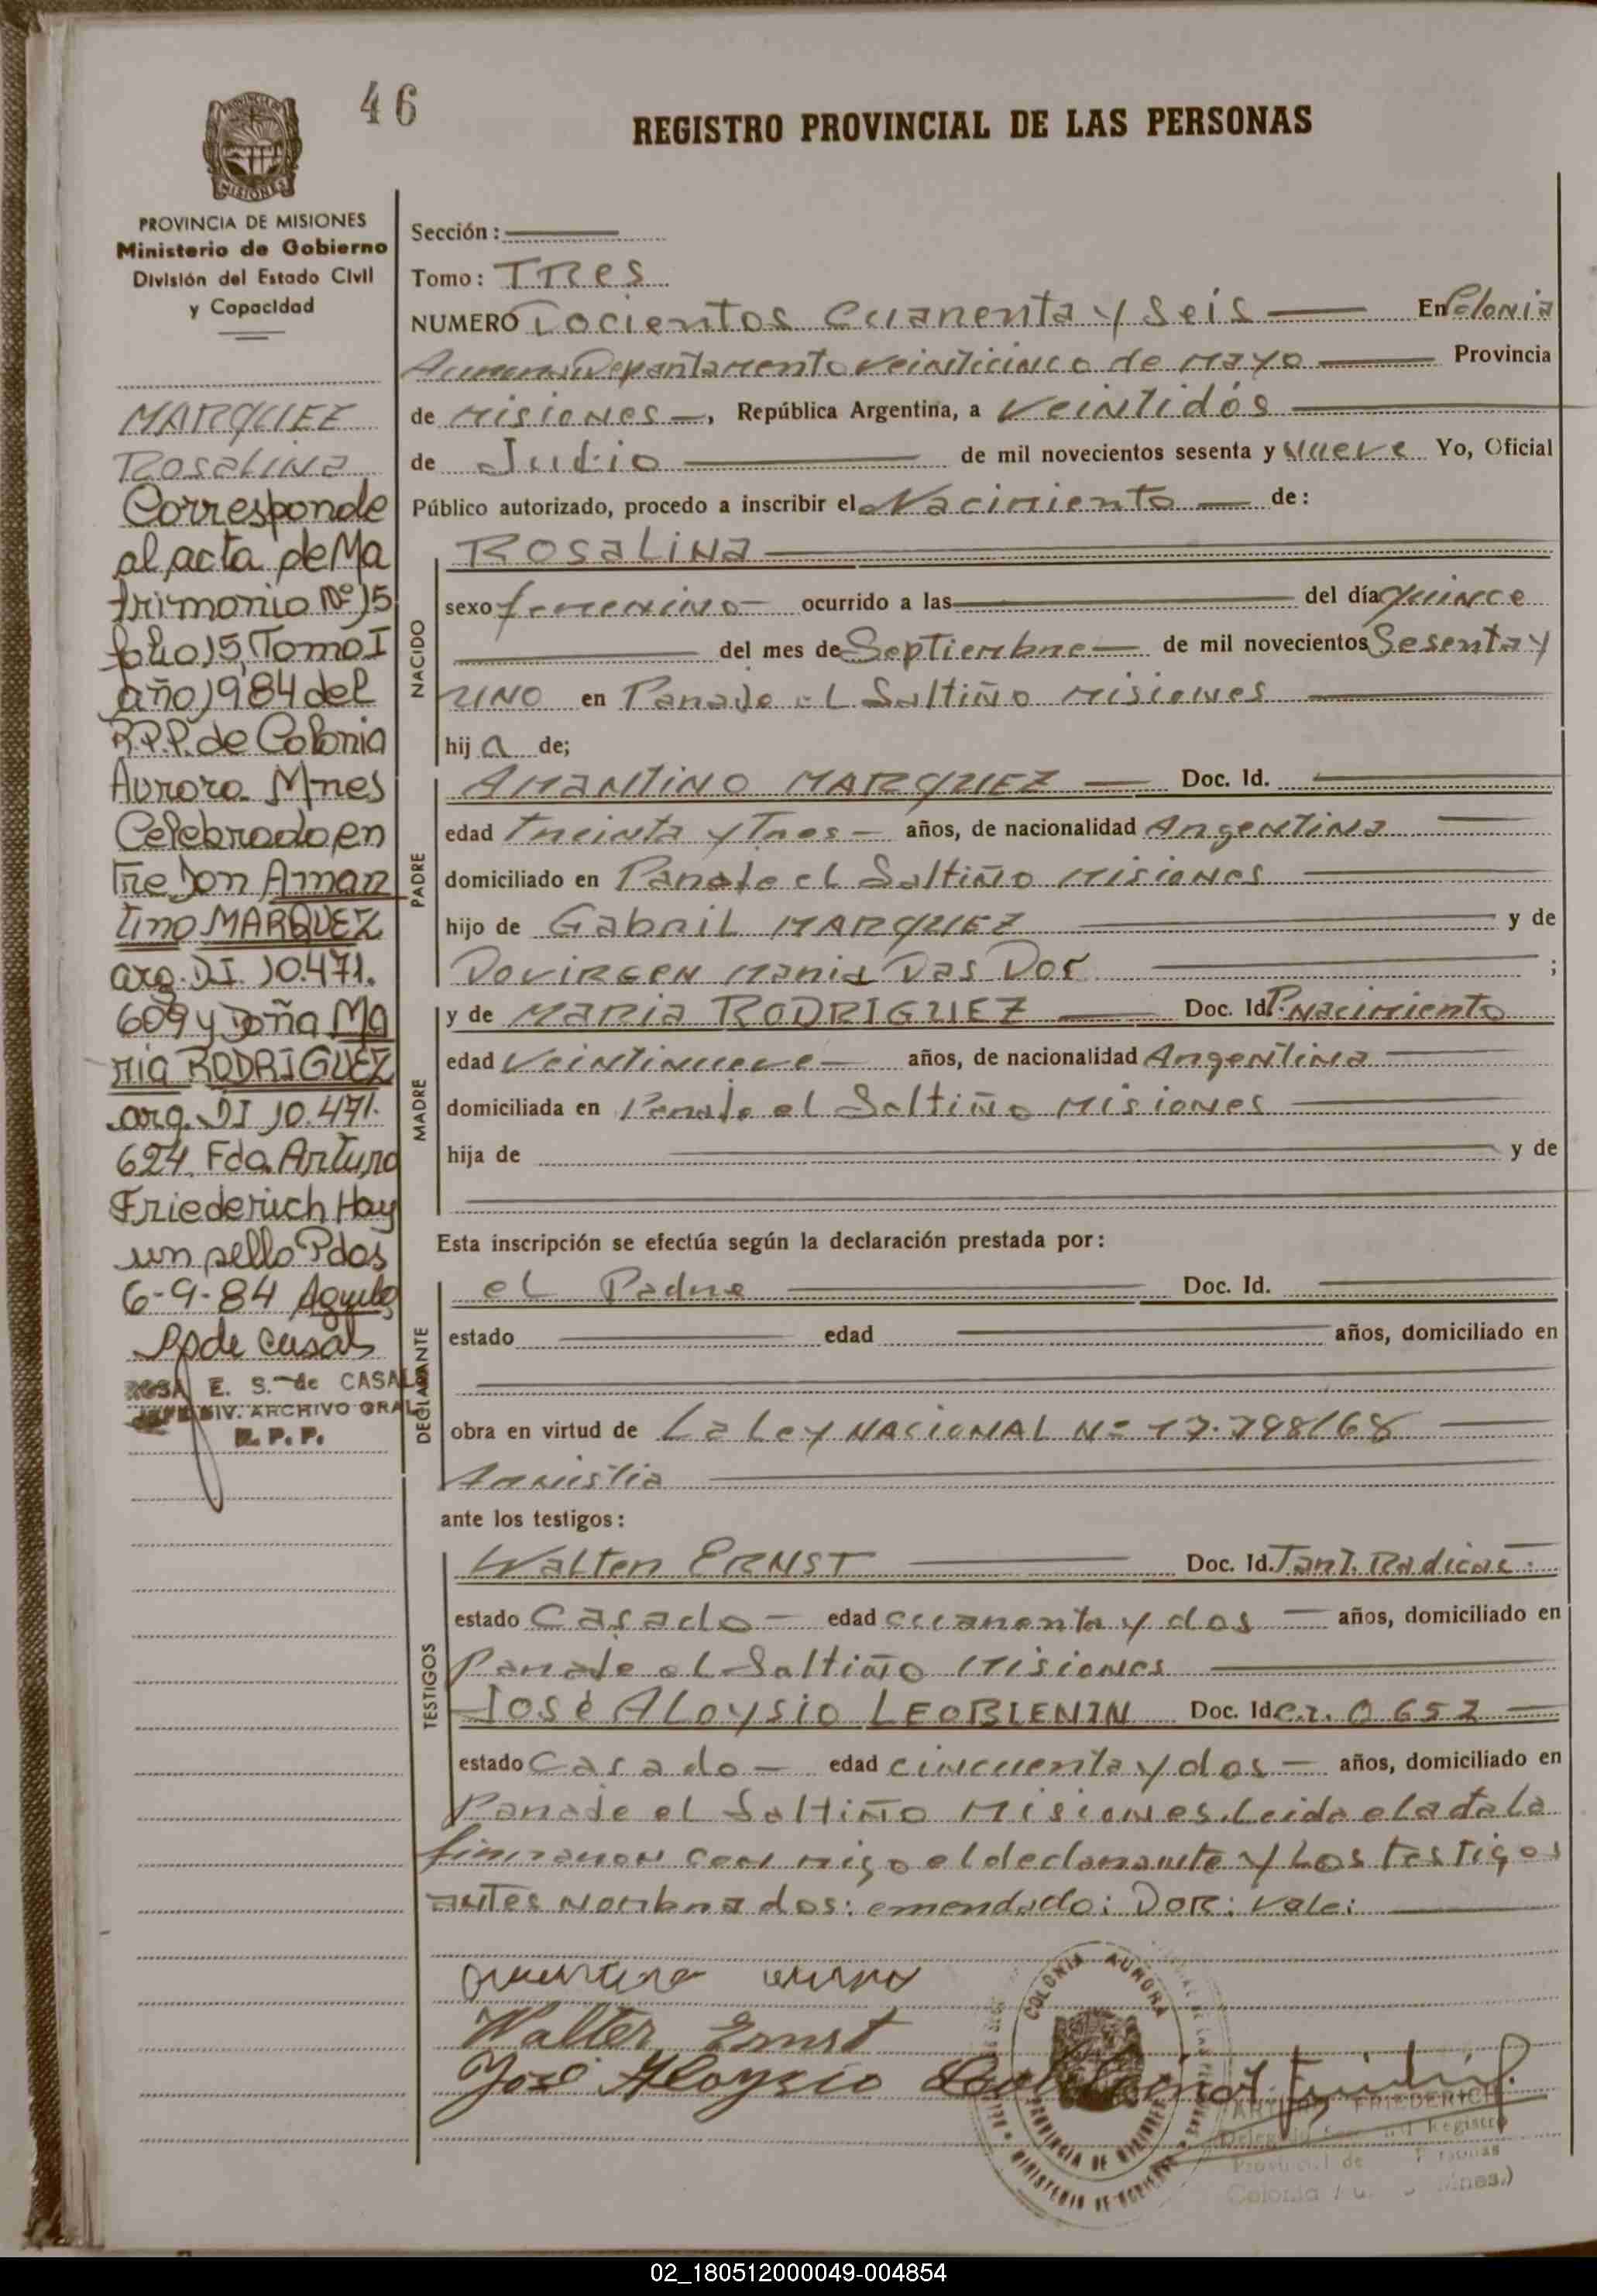 46
REGISTRO PROVINCIAL DE LAS PERSONAS
PROVINCIA DE MISIONES
Ministerio de Gobierno
División del Estado Civil
y Capacidad
MARQUEZ
ROSALINA
Corresponde
al acta de Ma
trimonio Nº 15
folio 15, Tomo I
año 1984 del
R.P.P. de Colonia
Aurora Mnes
Celebrado en
tre Don Aman
tino MARQUEZ
arg. DI. 10.471.
609 y Doña Ma
ria RODRIGUEZ
arg. DI 10.471.
624. Fdo. Arturo
Friederich Hay
un sello Pdos
6-9-84
de Casals
ROSA E. S. de CASALS
JEFE DIV. ARCHIVO GRAL.
R. P. P.
Sección:
Tomo: TRes
NUMERO Docientos Cuarenta y Seis En Colonia
Aurora Departamento veinticinco de Mayo Provincia
de Misiones, República Argentina, a Veintidós
de Julio de mil novecientos sesenta y nueve Yo, Oficial
Público autorizado, procedo a inscribir el Nacimiento de:
NACIDO
ROSALINA
sexo femenino ocurrido a las del día quince
del mes de Septiembre de mil novecientos Sesenta y
UNO en Paraje el Saltiño Misiones
hij a de;
PADRE
AMANTINO MARQUEZ Doc. Id.
edad treinta y Tres años, de nacionalidad Argentina
domiciliado en Paraje el Saltiño Misiones
hijo de Gabriel MARQUEZ y de
DOVIRGEN Maria Das Dor ;
MADRE
y de MARIA RODRIGUEZ Doc. Id. P. Nacimiento
edad Veintinueve años, de nacionalidad Argentina
domiciliada en Paraje el Saltiño Misiones
hija de y de
Esta inscripción se efectúa según la declaración prestada por:
DECLARANTE
el Padre Doc. Id.
estado edad años, domiciliado en
obra en virtud de La Ley NACIONAL Nº 17.798/68
Amnistia
ante los testigos:
TESTIGOS
Walter ERNST Doc. Id. Tarj. Radicac.
estado Casado edad cuarenta y dos años, domiciliado en
Paraje el Saltiño Misiones
José ALOYSIO LEOBLENIN Doc. Id C.I. 0 652
estado Casado edad cincuenta y dos años, domiciliado en
Paraje el Saltiño Misiones. Leida el acta la
firmaron con migo el declarante y Los testigos
antes nombrados: emendado: DOR: Vale:
Walter Ernst
José Aloysio
COLONIA AURORA
PROVINCIA DE MISIONES
MINISTERIO DE GOBIERNO
ARTURO FRIEDERICH
Registro
Provincial de Personas
Colonia Au Mnes.)
02_180512000049-004854